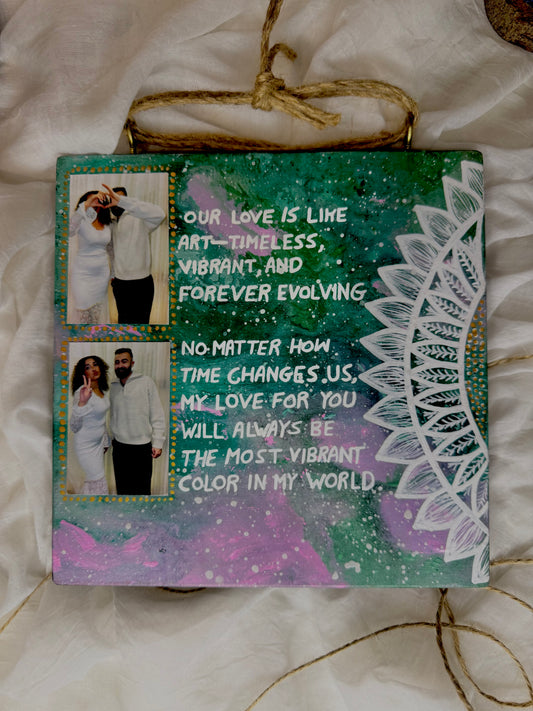 OUR LOVE IS LIKE
ART—TIMELESS,
VIBRANT, AND
FOREVER EVOLVING
NO MATTER HOW
TIME CHANGES US,
MY LOVE FOR YOU
WILL ALWAYS BE
THE MOST VIBRANT
COLOR IN MY WORLD